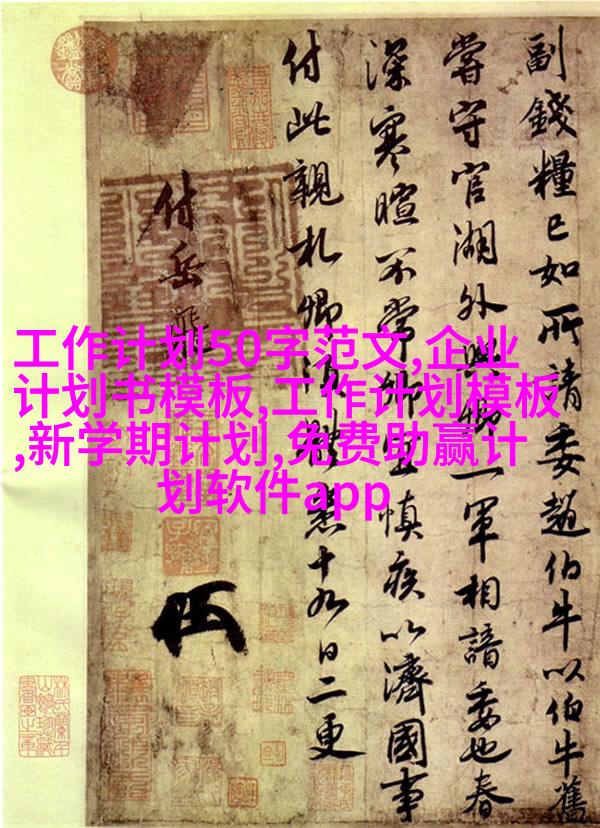 工作计划50字范文,企业
计划书模板,工作计划模板
,新学期计划,免费助赢计
划软件app
副錢糧已如所請委趙伯牛以伯牛舊
嘗守官湖外與卿一軍相諳委也春
深寒暄不常卿宜慎疾以濟國事
付此親札卿須體悉十九日二更
付岳飛